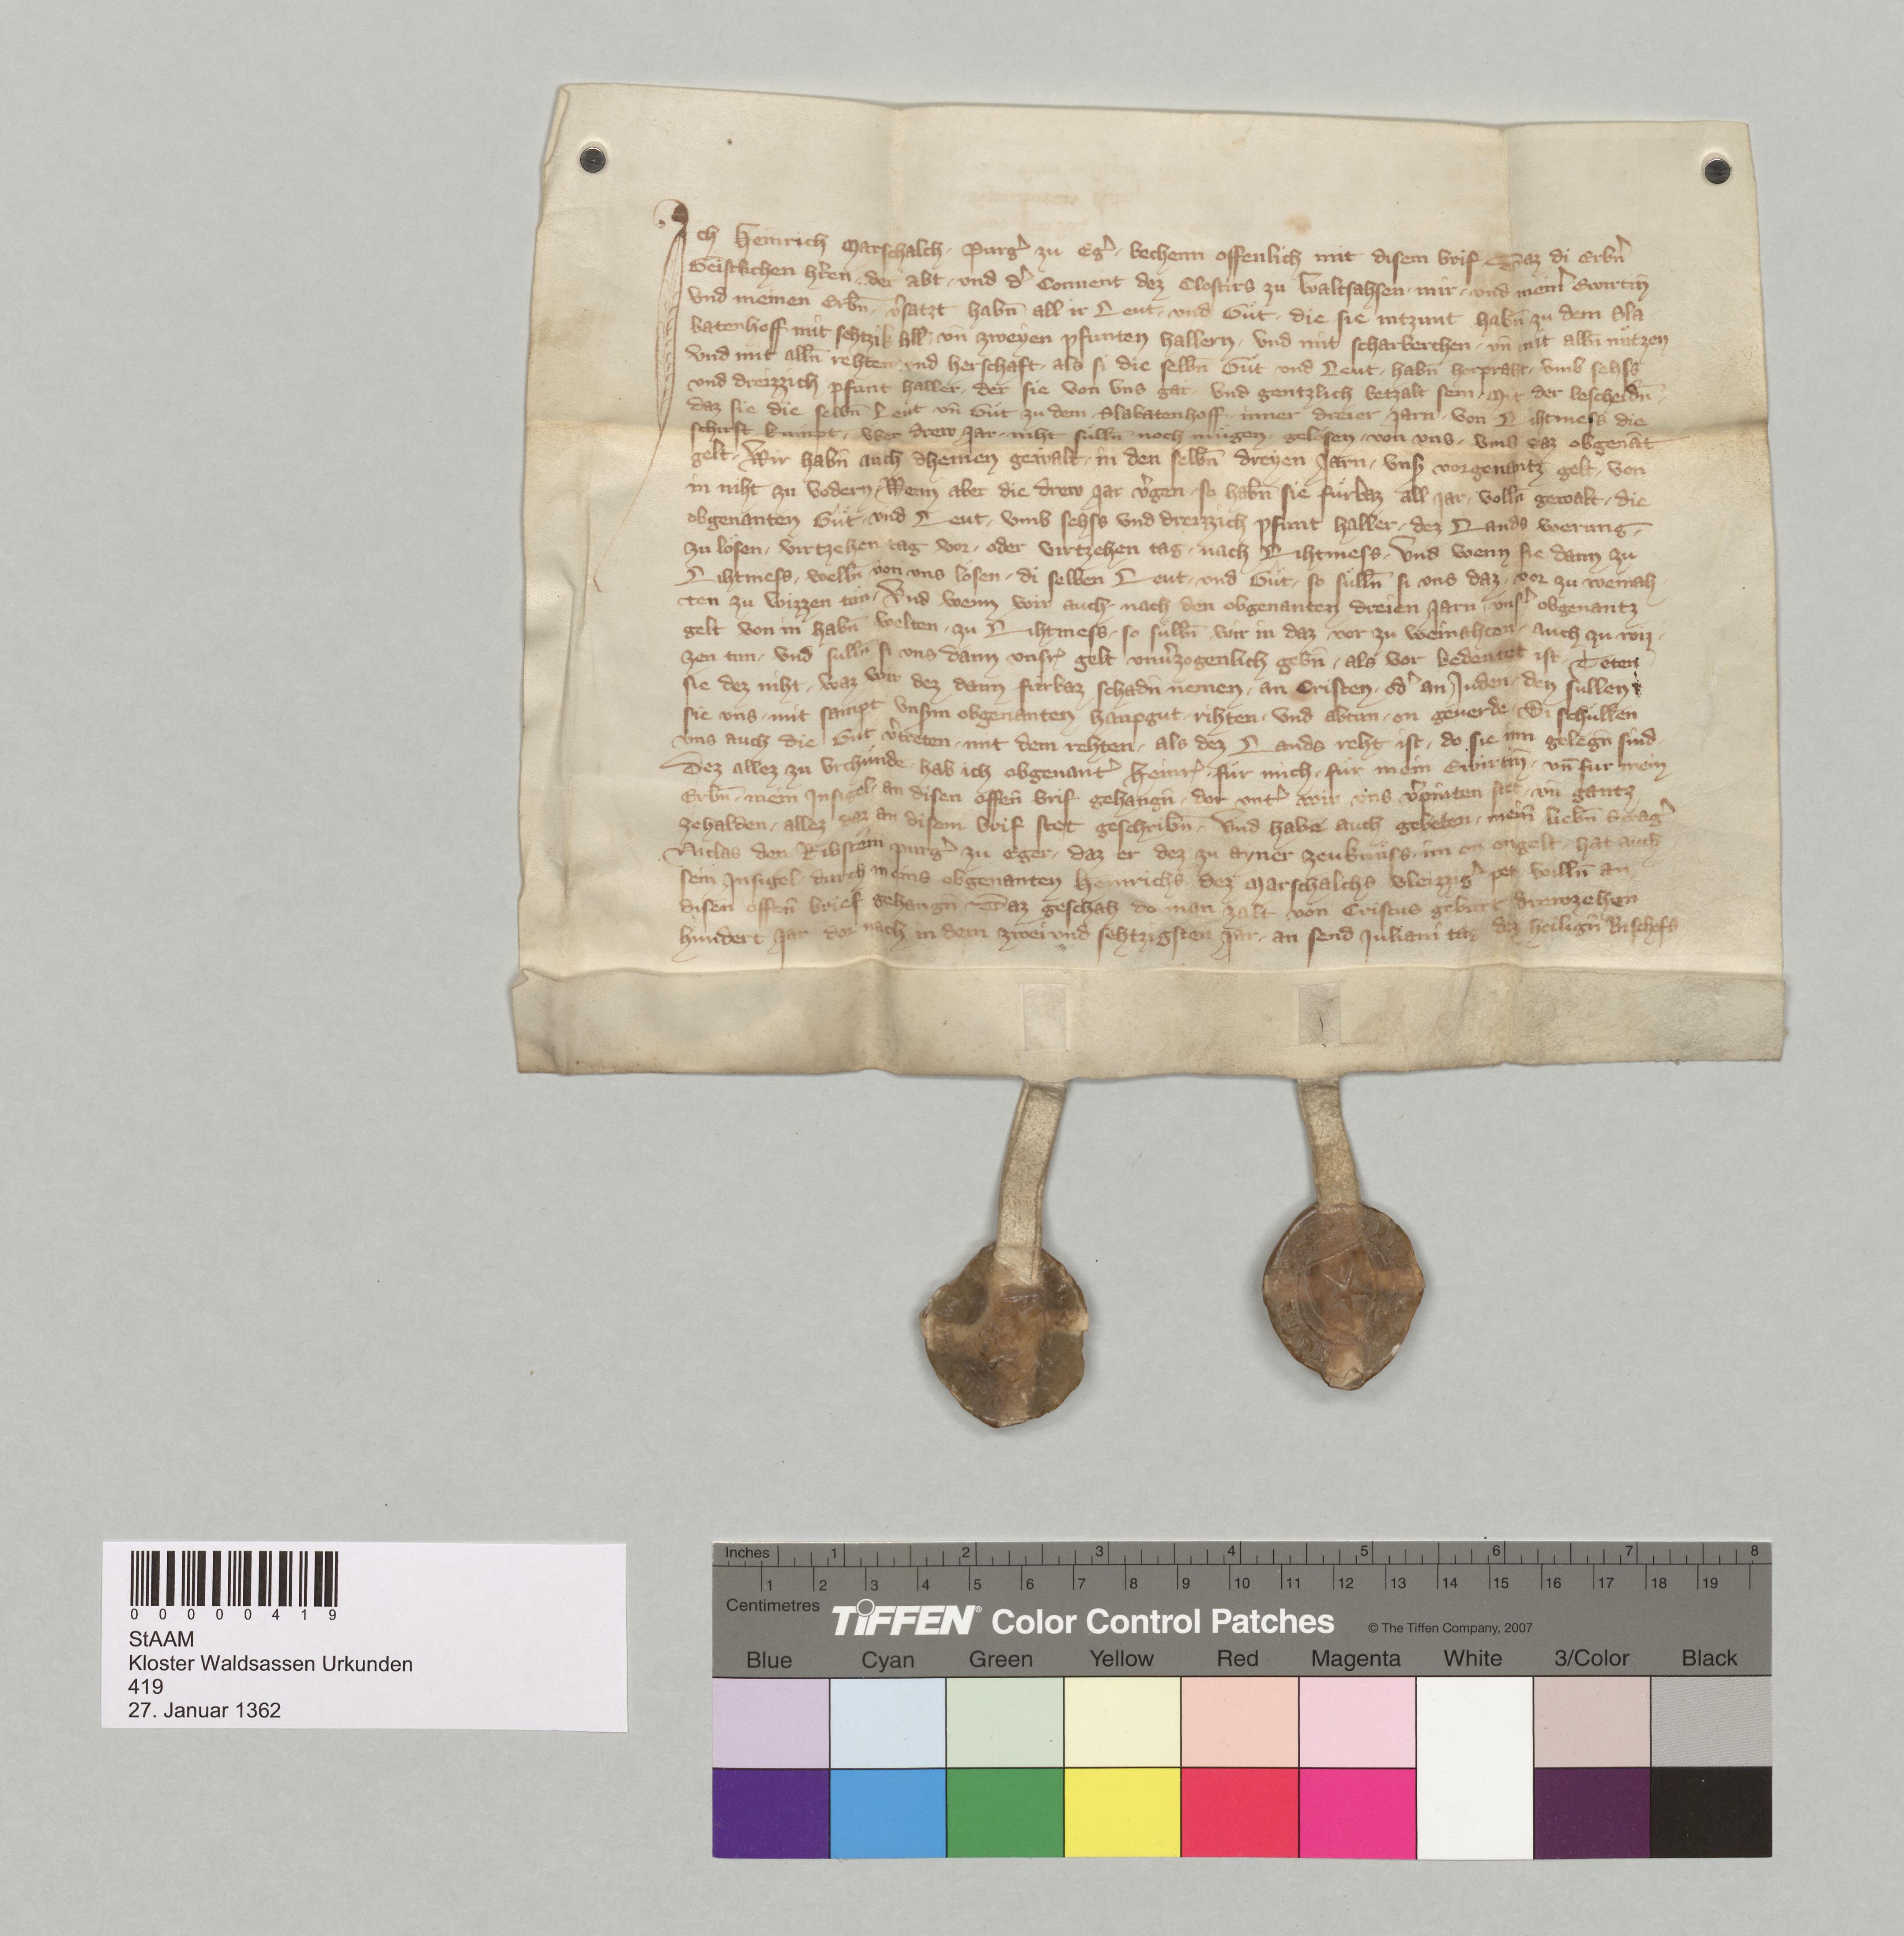 Ich Heinrich Marschalch · Purg͛ zu Eg͛ · bechenn offenlich mit disem brif Daz di Erbn͛
Geistlichen h͛ren · der abt · und d͛ Conuent dez Closters zu Waltsahsen · mir · und mein͛ Ewirtin
Vnd meinen Erbn̄ · v͛satzt habn̄ all ir Leut · und Guͤt · die sie itzunt habn̄ zu dem Sla
katenhoff mit sehtzik hll̄ · vn̄ zweyen pfunten hallern · Vnd mit scharberchen · vn̄ mit alln̄ nuͤtzen
Vnd mit alln̄ rehten und herschaft · als si die selbn̄ Guͤt und Leut · habn̄ herpraht · vmb sehss
und dreizzich pfunt haller · der sie von vns gar · Vnd gentzlich betzalt sein · Mit der bescheidn̄
daz sie die selbn̄ Leut vn̄ Guͤt zu dem Slakatenhoff · inner dreier Jarn · von Lihtmess die
schirst kumpt · vber drew Jar · niht suͤlln̄ noch muͤgen · geloͤsen · von vns · vmb daz obgenāt
gelt · Wir habn̄ auch dheinen gewalt · in den selbn̄ dreyen Jarn · vns͛ vorgenantz gelt · von
in niht zu vodern · Wenn aber die drew Jar v͛gen · so habn̄ sie fuͤrbaz all Jar · volln̄ gewalt · die
obgenanten Guͤt · und Leut · vmb sehss vnd dreizzich pfunt haller · dez Lands werung ·
zu loͤsen · virtzehen tag vor · oder virtzehen tag · nach Lihtmess · Vnd wenn sie dann zu
Lihtmess · welln̄ von vns loͤsen · di selben Leut · und Guͤt · so suͤlln̄ si vns daz · vor zu weinah
ten zu wizzen tun · Vnd wenn wir auch · nach den obgenanten dreien Jarn · vns͛ obgenantz
gelt von in habn̄ welten · zu Lihtmess · so suͤlln̄ wir in daz · vor zu weinahten · auch zu wiz
zen tun · und sulln̄ si vns dann vns͛ gelt vnu͛zogenlich gebn̄ · als vor bedeutet ist · Teten
sie dez niht · waz wir dez dann fuͤrbaz schadn̄ nemen · an Cristen · od͛ an Juden · den suͤllen
sie vns · mit sampt vns͛m obgenanten haupgut · rihten · Vnd abtun · on geuerde · Si schuͤllen
vns auch die Guͤt v͛treten · mit dem rehten · als dez Lands reht ist · do sie inn gelegn̄ sind ·
Dez allez zu Vrchuͤnde · hab ich obgenant͛ Heinr͛ · fuͤr mich · fuͤr mein Ewirtin̄ · vn̄ fur mein
Erbn̄ · mein Insigel · an disen offen̄ brif gehangn̄ · dor vnt͛ wir vns v͛pinten stet · vn̄ gantz
zehalden · allez daz an disem brif stet geschribn̄ · Vnd habe auch gebeten · mein̄ liebn̄ Swag͛
Niclas den Ribstein purg͛ zu Eger · daz er dez zu ayner zeuknuͤss · im on engelt · hat auch
sein Insigel · durch meins obgenanten Heinrichs dez Marschalchs vleizzig͛ pet willn̄ an
disen offen̄ brief gehangn̄ Daz geschah do man zalt von Cristus geburt drewzehen
hundert Jar dor nach in dem zwei und sehtzigsten Jar · an send Juliani tag dez heilign̄ Bischofs
00000419
StAAM
Kloster Waldsassen Urkunden
419
27. Januar 1362
Inches 1 2 3 4 5 6 7 8
1 2 3 4 5 6 7 8 9 10 11 12 13 14 15 16 17 18 19
Centimetres
TIFFEN® Color Control Patches © The Tiffen Company, 2007
Blue Cyan Green Yellow Red Magenta White 3/Color Black